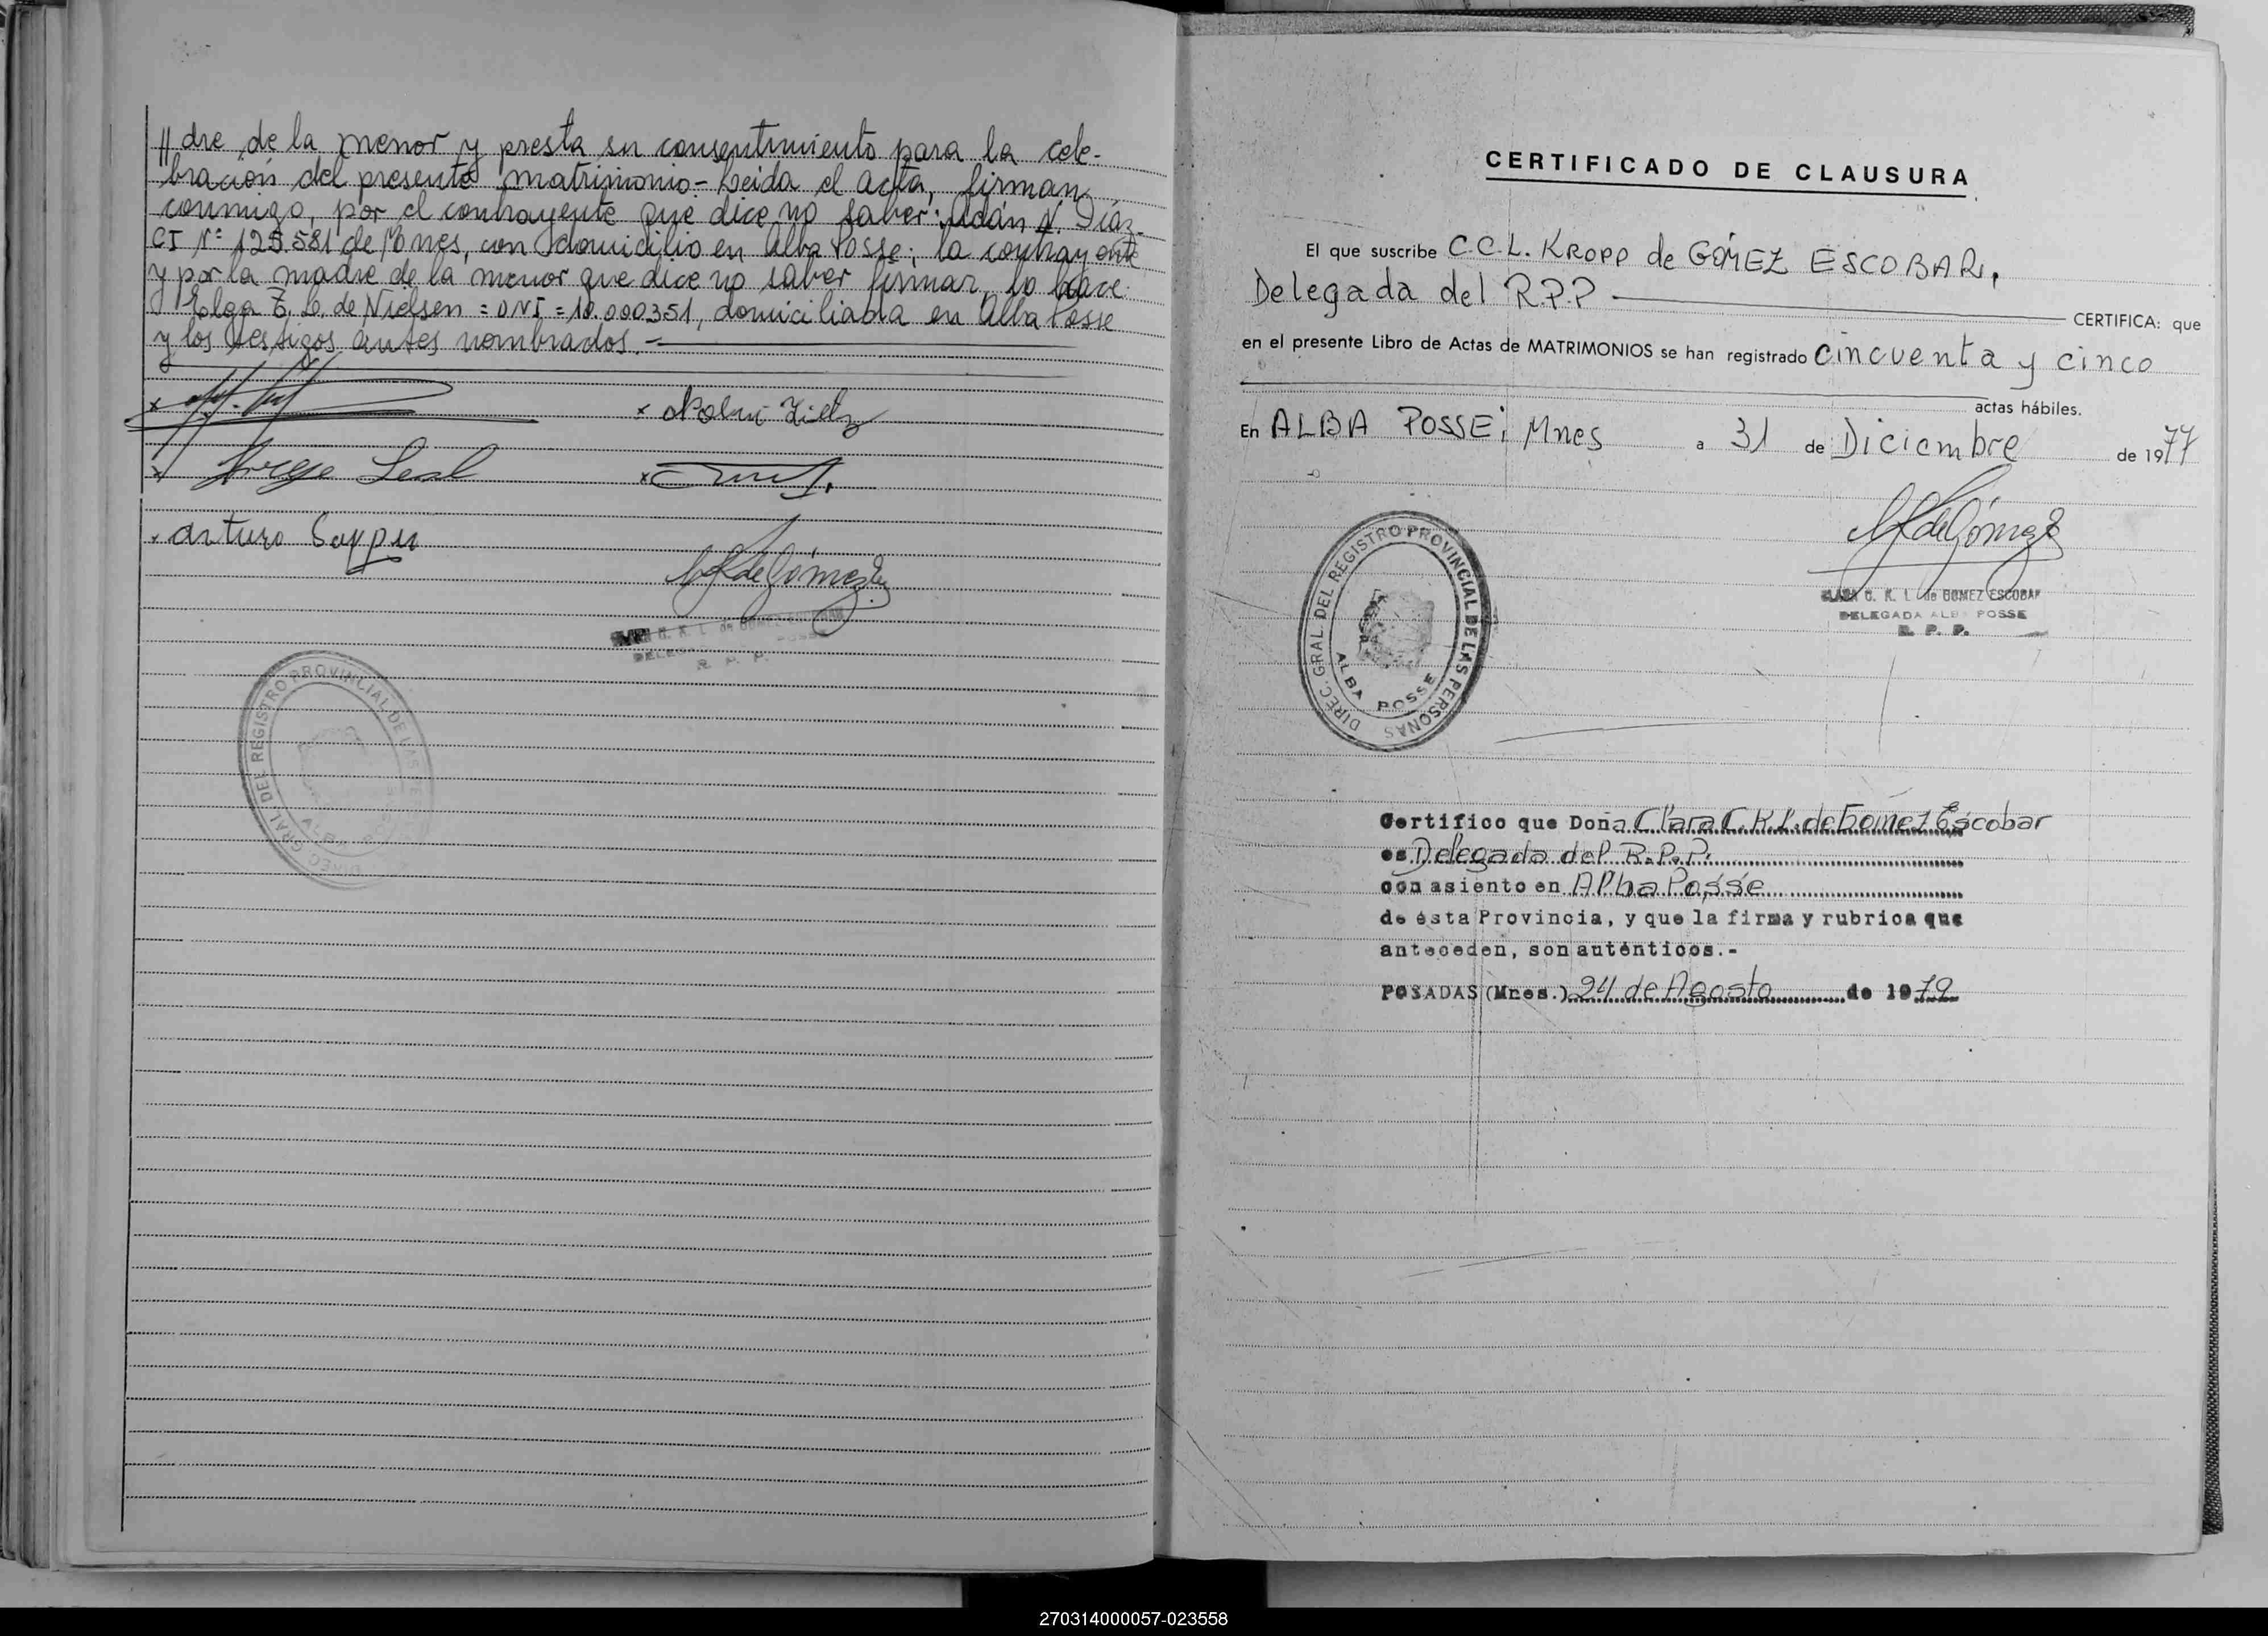 //dre, de la menor y presta su consentimiento para la cele-
bración del presente matrimonio - Leida el acta, firman
conmigo, por el contrayente que dice no saber: Adán N. Díaz-
CI Nº 125.581 de Mnes, con domicilio en Alba Posse; la contrayente
y por la madre de la menor que dice no saber firmar, lo hace:
Elga Z. L. de Nielsen = DNI = 10.000351, domiciliada en Alba Posse
y los testigos antes nombrados.-
x
x
x Jorge Leal
x
. Arturo
CKdeGómezE
C. K. L. de GOMEZ ESCOBAR
DELEGADA POSSE
R. P. P.
DIREC. GRAL. DEL REGISTRO PROVINCIAL DE LAS
ALBA
CERTIFICADO DE CLAUSURA
El que suscribe C.C.L. KROPP de GOMEZ ESCOBAR,
Delegada del R.P.P
CERTIFICA: que
en el presente Libro de Actas de MATRIMONIOS se han registrado cincuenta y cinco
actas hábiles.
En ALBA POSSE; Mnes a 31 de Diciembre de 1977
CKdeGómezE
CLARA C. K. L. de GOMEZ ESCOBAR
DELEGADA ALBA POSSE
R. P. P.
DIREC. GRAL DEL REGISTRO PROVINCIAL DE LAS PERSONAS
ALBA POSSE
Certifico que Doña Clara C.K.L. de Gomez Escobar
es Delegada del R.P.P.
con asiento en Alba Posse
de ésta Provincia, y que la firma y rubrica que
anteceden, son auténticos.-
POSADAS (Mnes.) 24 de Agosto de 1979
270314000057-023558